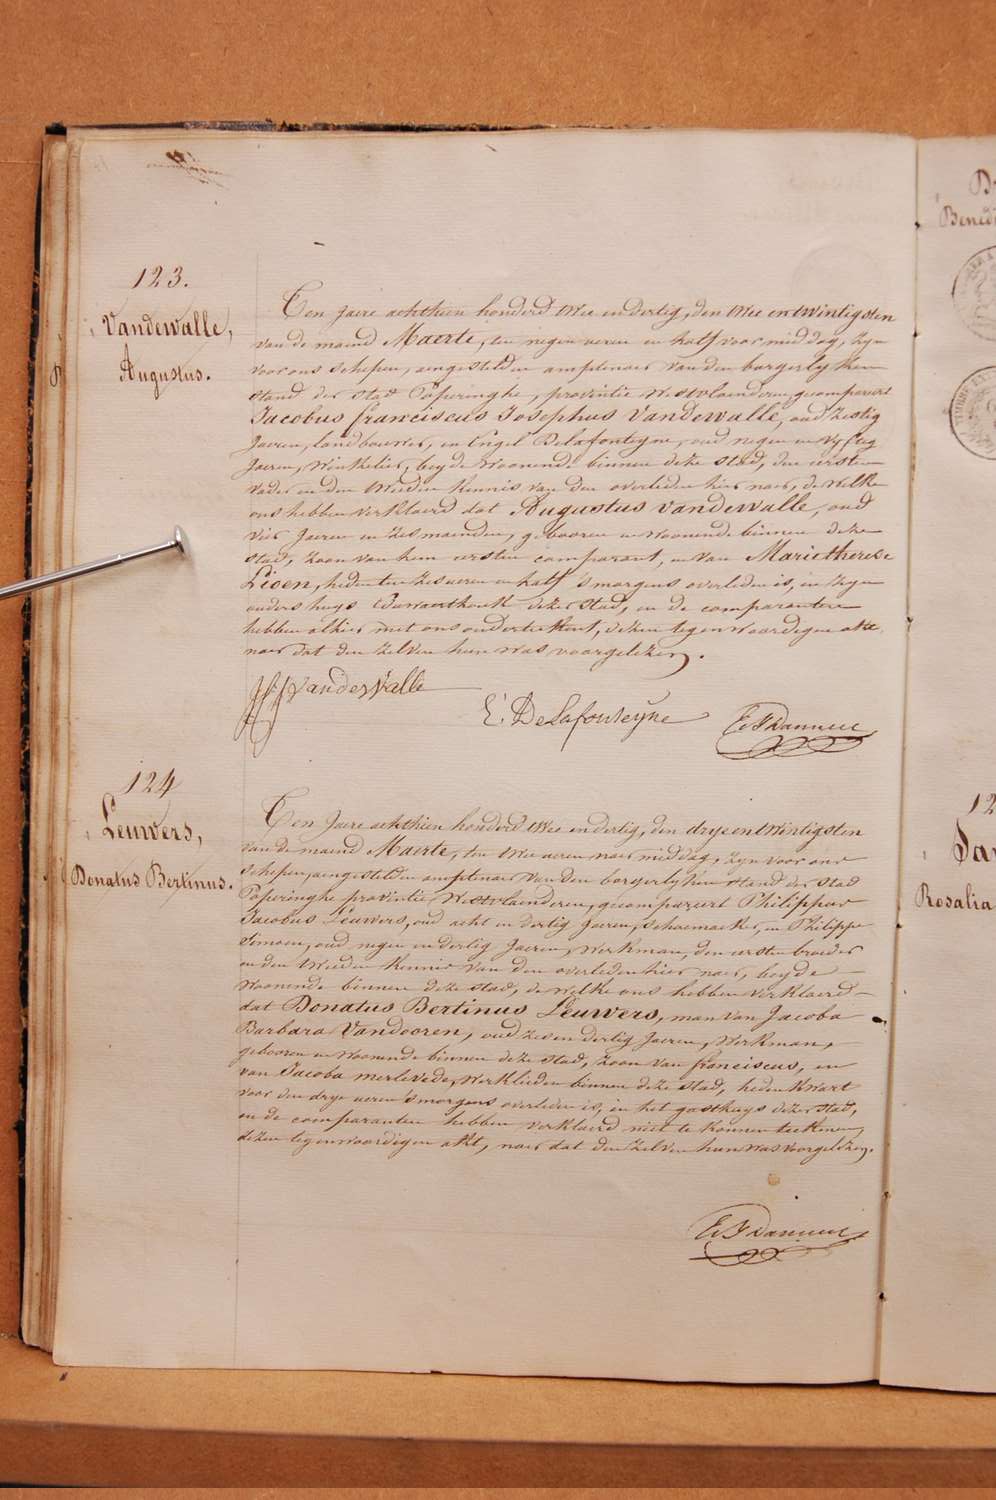 123.
Vandewalle,
Augustus.
Ten Jaere achthien honderd twee en dertig, den twee en twintigsten
van de maend Maerte, ten negen ueren en half voor middag, zyn
voor ons schepen, aengestelden amptenaer van den borgerlyken
stand der stad Poperinghe, provintie Westvlaenderen, gecompareert
Jacobus franciscus Josephus Vandewalle, oud zestig
Jaeren, landbouwer, en Engel Delafonteyne, oud negen en vyftig
Jaeren, Winkelier, beyde Woonende binnen deze stad, den eersten
vader en den tweeden kennis van den overleden hier naer, de welke
ons hebben verklaerd dat Augustus vandewalle, oud
vier Jaeren en zes maenden, gebooren en woonende binnen deze
stad, zoon van hem eersten comparant, en van Marie therese
Lioen, heden ten zes ueren en half 's morgens overleden is, in zyn
ouders huys deser stad, en de comparanten
hebben alhier met ons onderteekent, dezen tegenwoordigen akte
naer dat den zelven hun was voorgelezen.
JFJ Vandewalle
E. Delafonteyne
124
Leuwers,
Donatus Bertinus.
Ten Jaere achthien honderd twee en dertig, den drye en twintigsten
van de maend Maerte, ten twee ueren naer middag, zyn voor ons
schepen, aengestelden amptenaer van den borgerlyken stand der stad
Poperinghe provintie Westvlaenderen, gecompareert Philippus
Jacobus Leuwers, oud acht en dertig Jaeren, schoemaeker, en Philippe
Simoen, oud negen en dertig Jaeren, Werkman, den eersten broeder
en den tweeden kennis van den overleden hier naer, beyde
woonende binnen deze stad, de welke ons hebben verklaerd
dat Donatus Bertinus Leuwers, man van Jacoba
Barbara Vandooren, oud zes en dertig Jaeren, Werkman,
gebooren en woonende binnen deze stad, zoon van franciscus, en
van Jacoba merlevede, Werklieden binnen deze stad, heden kwart
voor den drye ueren 's morgens overleden is, in het gasthuys dezer stad,
en de comparanten hebben verklaerd niet te konnen teekenen,
dezen tegenwoordigen akt, naer dat den zelven hun was voorgelezen.
Benedi
12
Rosalia